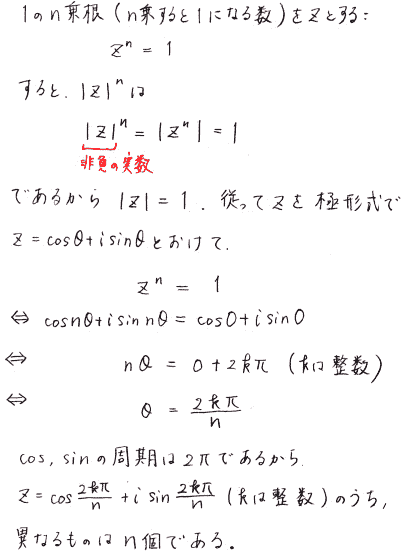 1のn乗根(n乗すると1になる数)をzとする:
z^n = 1
すると、|z|^n は
|z|^n = |z^n| = 1
非負の実数
であるから |z| = 1. 従ってzを極形式で
z = cosθ + i sinθ とおけて、
z^n = 1
⇔ cos nθ + i sin nθ = cos0 + i sin0
⇔ nθ = 0 + 2kπ (kは整数)
⇔ θ = 2kπ/n
cos, sinの周期は2πであるから、
z = cos 2kπ/n + i sin 2kπ/n (kは整数)のうち,
異なるものはn個である.